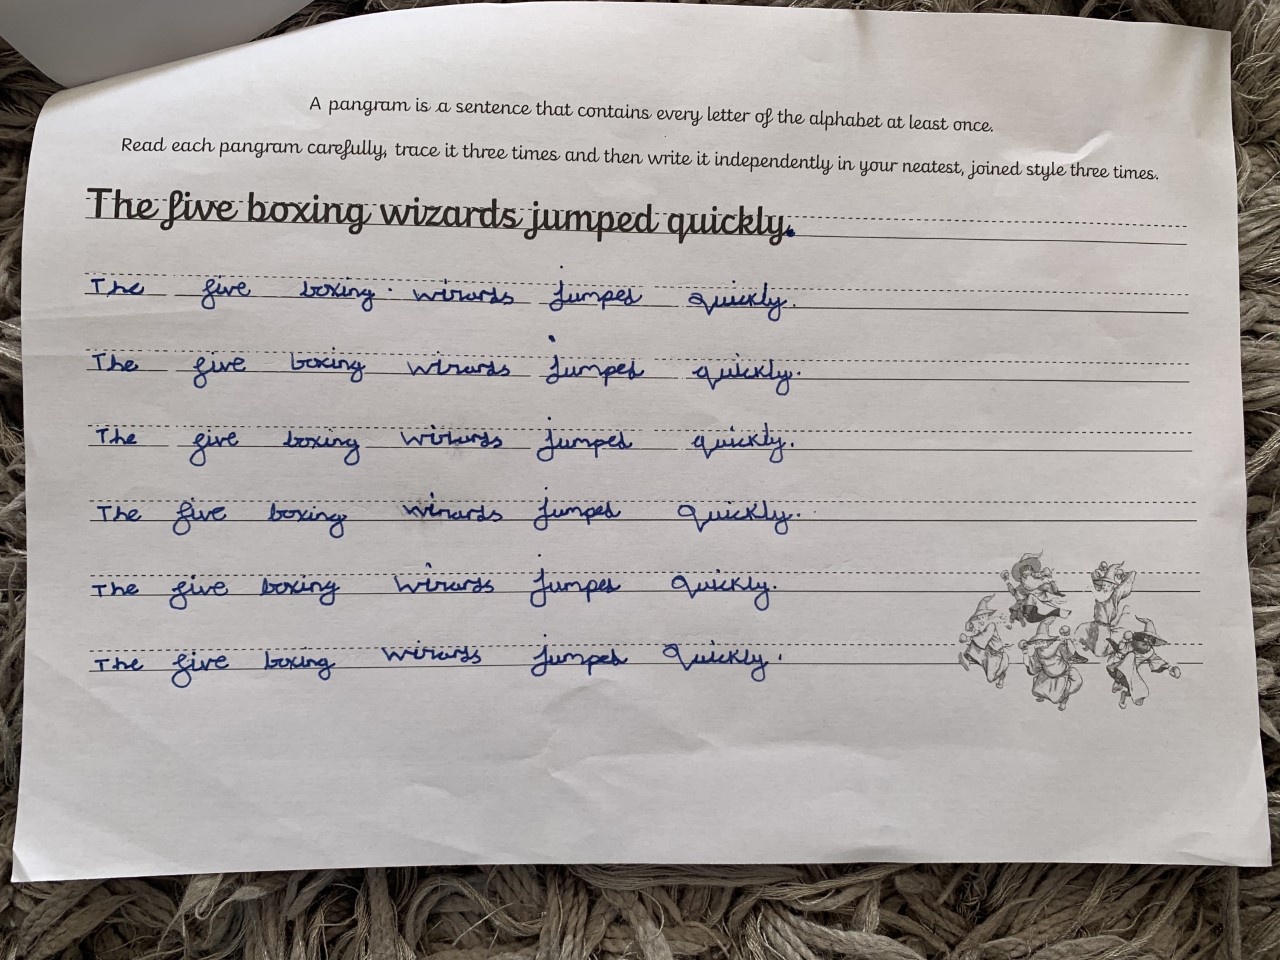 A pangram is a sentence that contains every letter of the alphabet at least once.
Read each pangram carefully, trace it three times and then write it independently in your neatest, joined style three times.
The five boxing wizards jumped quickly.
The five boxing wizards jumped quickly.
The five boxing wizards jumped quickly.
The five boxing wizards jumped quickly.
The five boxing wizards jumped quickly.
The five boxing wizards jumped quickly.
The five boxing wizards jumped quickly.